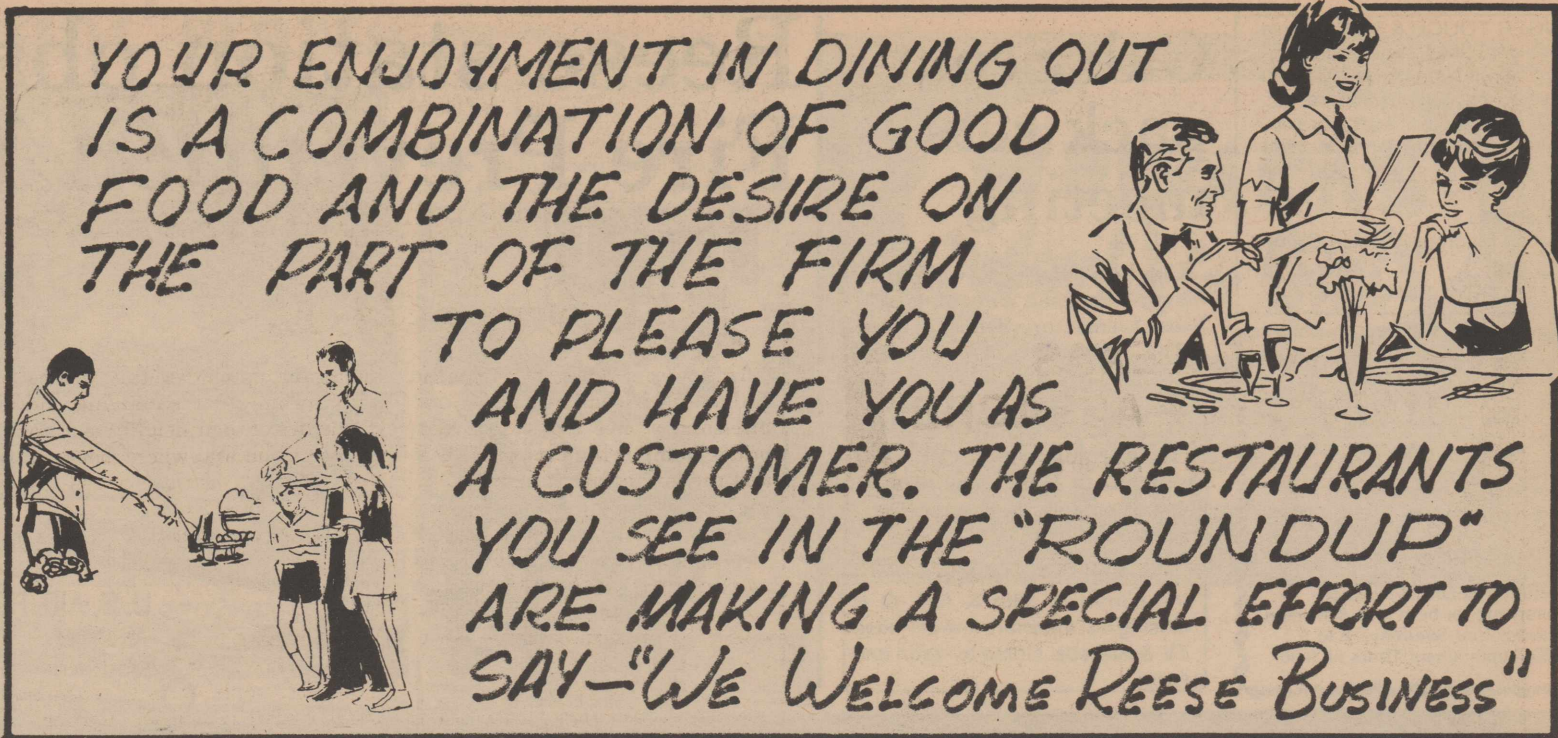 YOUR ENJOYMENT IN DINING OUT
IS A COMBINATION OF GOOD
FOOD AND THE DESIRE ON
THE PART OF THE FIRM
TO PLEASE YOU
AND HAVE YOU AS
A CUSTOMER. THE RESTAURANTS
YOU SEE IN THE "ROUNDUP"
ARE MAKING A SPECIAL EFFORT TO
SAY—"WE WELCOME REESE BUSINESS"